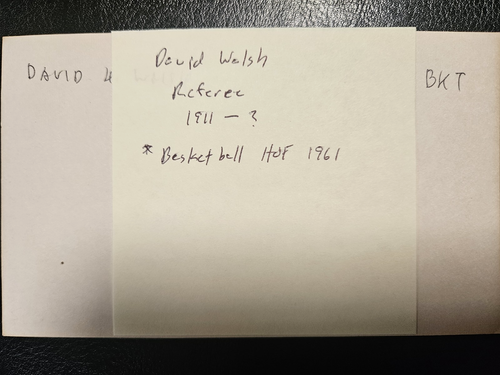 David Walsh
Referee
1911 - ?
* Basketball HOF 1961
DAVID
BKT